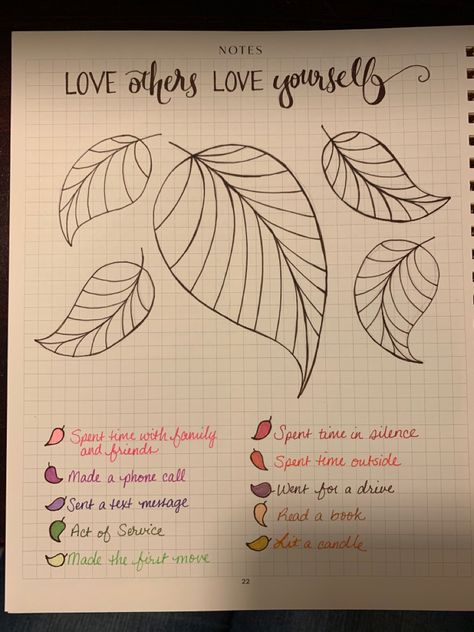 NOTES
LOVE others LOVE yourself
Spent time with family
and friends
Made a phone call
Sent a text message
Act of Service
Made the first move
Spent time in silence
Spent time outside
Went for a drive
Read a book
Lit a candle
22